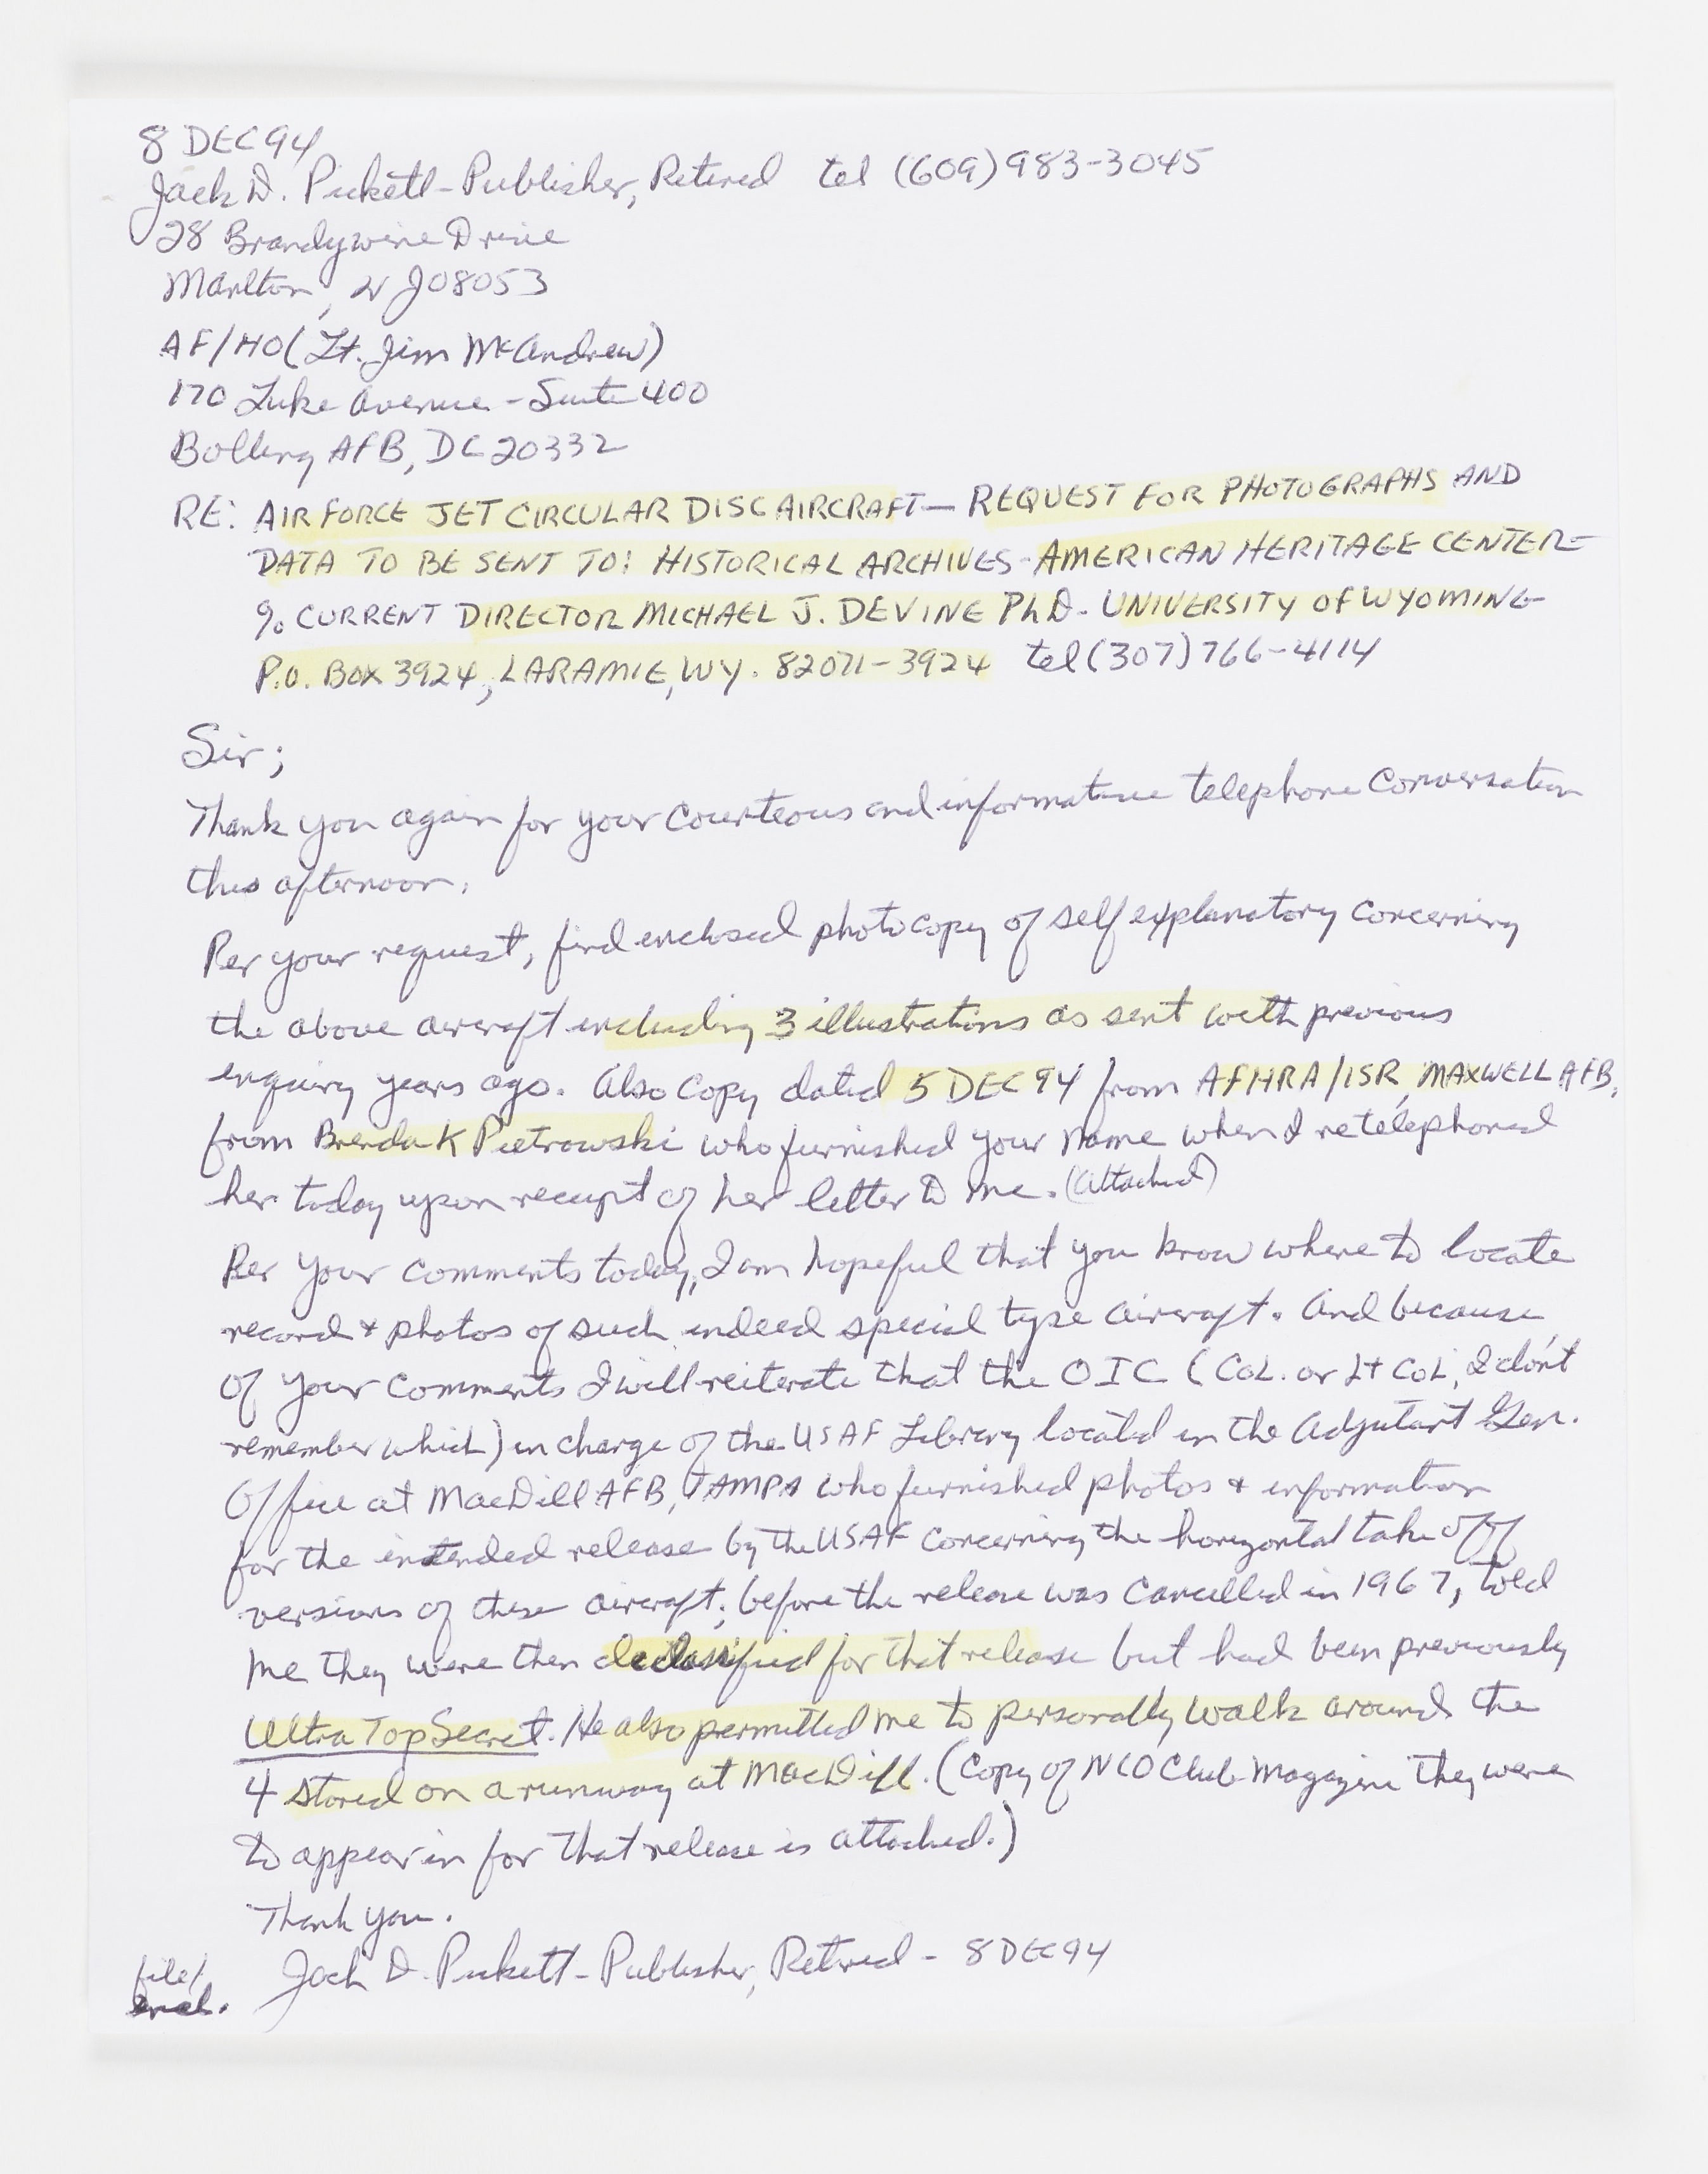 8 DEC 94
Jack D. Pickett - Publisher, Retired tel (609) 983-3045
28 Brandywine Drive
Marlton, NJ 08053
AF/HO (Lt. Jim McAndrew)
170 Luke Avenue - Suite 400
Bolling AFB, DC 20332
RE: AIR FORCE JET CIRCULAR DISC AIRCRAFT — REQUEST FOR PHOTOGRAPHS AND
DATA TO BE SENT TO: HISTORICAL ARCHIVES - AMERICAN HERITAGE CENTER -
% CURRENT DIRECTOR MICHAEL J. DEVINE PhD - UNIVERSITY OF WYOMING -
P.O. BOX 3924, LARAMIE, WY. 82071-3924 tel (307) 766-4114
Sir;
Thank you again for your courteous and informative telephone conversation
this afternoon.
Per your request, find enclosed photocopy of self explanatory concerning
the above aircraft including 3 illustrations as sent with previous
enquiry years ago. Also copy dated 5 DEC 94 from AFHRA/ISR, MAXWELL AFB,
from Brenda K Pietrowski who furnished your name when I retelephoned
her today upon receipt of her letter to me. (attached)
Per your comments today, I am hopeful that you know where to locate
record + photos of such indeed special type aircraft. And because
of your comments I will reiterate that the OIC (COL. or Lt COL, I don't
remember which) in charge of the USAF Library located in the Adjutant Gen.
Office at MacDill AFB, TAMPA who furnished photos + information
for the intended release by the USAF concerning the horizontal take off
versions of these aircraft; before the release was cancelled in 1967, told
me they were then declassified for that release but had been previously
Ultra Top Secret. He also permitted me to personally walk around the
4 stored on a runway at MacDill. (Copy of NCO Club Magazine they were
to appear in for that release is attached.)
Thank you.
Jack D. Pickett - Publisher, Retired - 8 DEC 94
file/
encl.